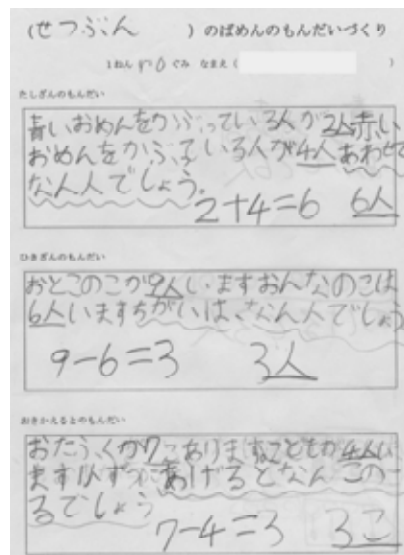 (せつぶん)のばめんのもんだいづくり
1ねん ぐみ なまえ( )
たしざんのもんだい
青いおめんをかぶっている人が2人赤い
おめんをかぶっている人が4人あわせて
なん人でしょう。
2+4=6 6人
ひきざんのもんだい
おとこのこが9人いますおんなのこは
6人いますちがいは、なん人でしょう
9-6=3 3人
おきかえるとのもんだい
おたふくが7こありますこどもが4人い
ます1人ずつあげるとなんこのこ
るでしょう
7-4=3 3こ